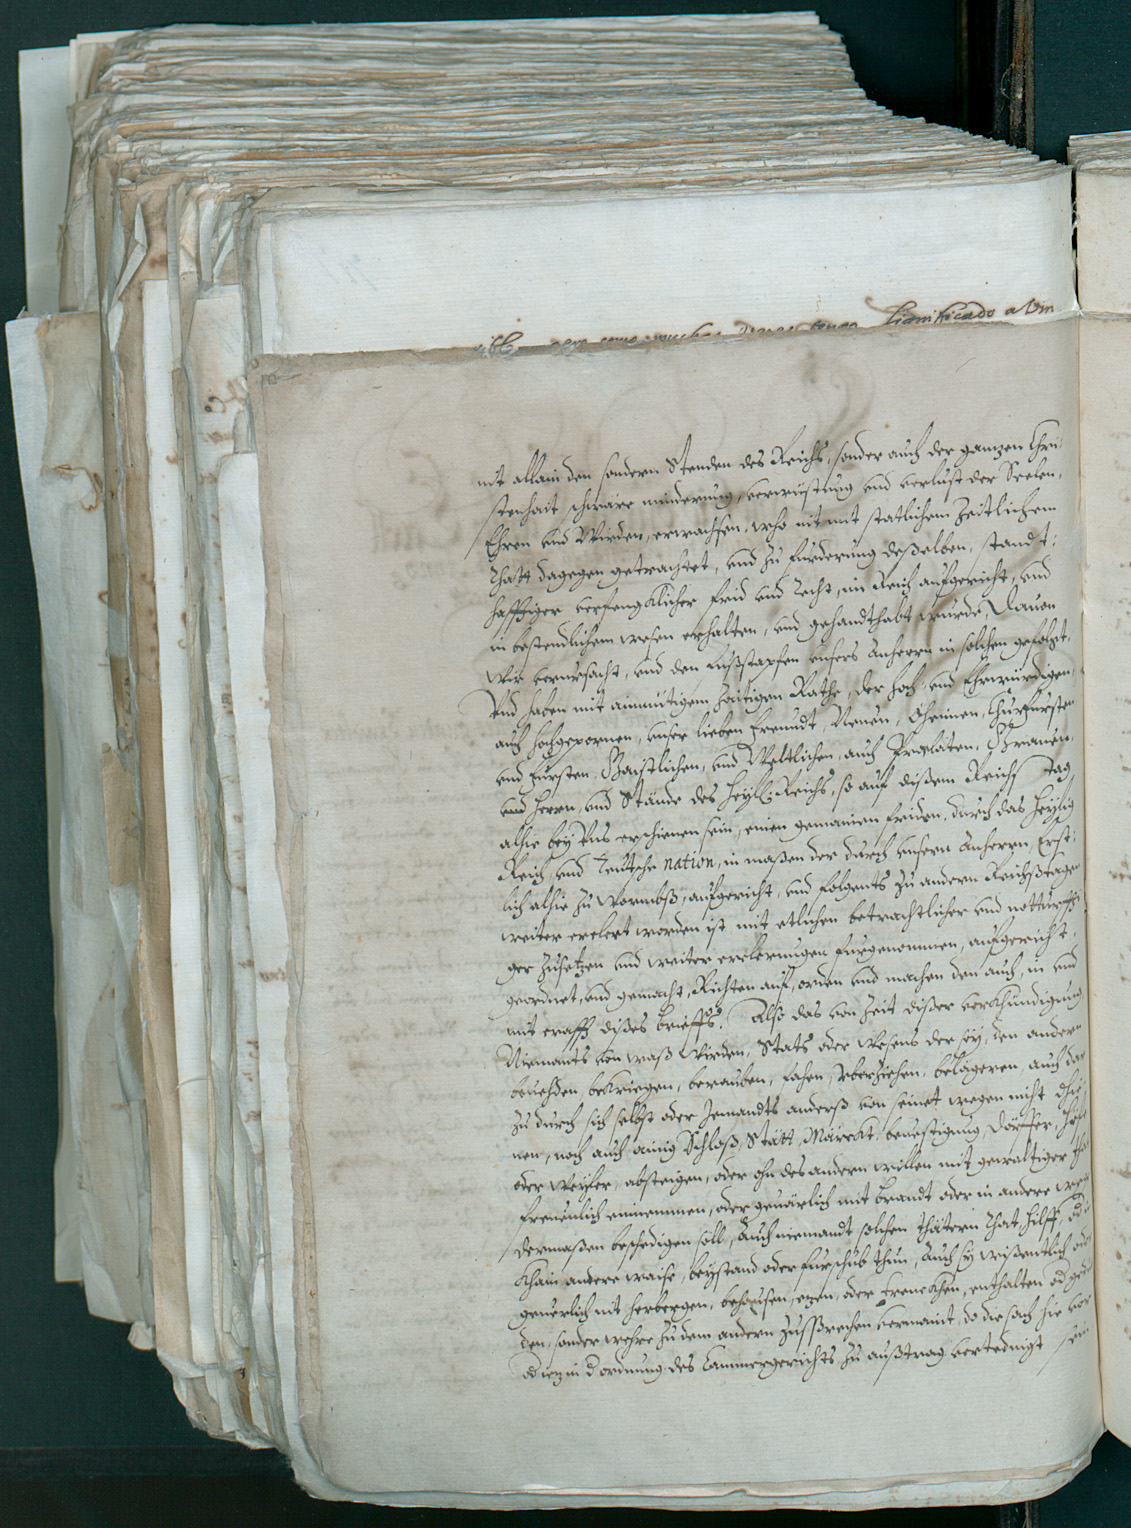 significado a Vm
nit allain den sondern Stenden des Reichs, sonder auch der ganzen Chri„
stenhait schwäre minderung, verwüstung und verlust der Seelen,
Ehren und Wirden, erwachsen, who nit mit statlichem zeitlichem
Rhatt dagegen getrachtet, und zu furderung deßelben, standt„
hafftiger verfengklicher frid und Recht, im Reich aufgericht, und
in bestendlichem wesen erhalten, und gehandthabt wurde, Dauon
Wir verursacht, und den fußstapfen unsers Anherrn in solchen gefolgt,
Und haben mit ainmütigem zeitigen Rathe, der hoch und Ehrwürdigen,
auch hochgepornen, unser lieben freundt, Neuen, Oheimen, Churfürsten
und Fursten, Gaistlichen, und Weltlichen, auch Prælaten, Grauen,
und Herrn, und Stände des Heyll: Reichs, so auf disem Reichs tag
alhie bey Uns erschienen sein, einen gemainen friden, durch das heylig
Reich, und Teutsche nation, in maßen der durch unsern Anherrn, Erst„
lich alhie zu Wormbß, aufgericht, und folgents zu andern Reichßtagen
weiter erclert worden ist mit etlichen betrachtlicher und notturffti„
ger zusetzen und weiter erclerungen furgenommen, aufgericht,
geordnet, und gemacht, Richten auf, orden und machen den auch, in und
mit crafft dises brieffs. Also das von Zeit diser verkhundigung
Niemants von waß Wirden, Stats oder Wesens der sey, den andern
beuehden, bekriegen, berauben, fahen, Uberziehen, belägeren, auch dar
zu durch sich selbst oder Jemandts anderß von seinet wegen nicht dhie„
nen, noch auch ainig Schloß, Stätt, Märckt, beuestigung, Dörffer, Höff
oder Weyler, absteigen, oder ohn des andern willen mit gewaltiger that
freuenlich einnemmen, oder geuärlich mit brandt oder in andere weeg
dermaßen beschedigen soll, Auch niemandt solchen thätern Rhat, hilff, od in
khain andere waise, beystand oder furschub thun, Auch sy wißentlich oder
geuerlich nit herbergen, behausen, ezen, oder trenckhen, enthalten od gedul
den, sonder wehre zu dem andern Zusprechen vermaint, do die sach hie vor
od iezu in d ordnung des Cammergerichts zu außtrag vertedingt sein